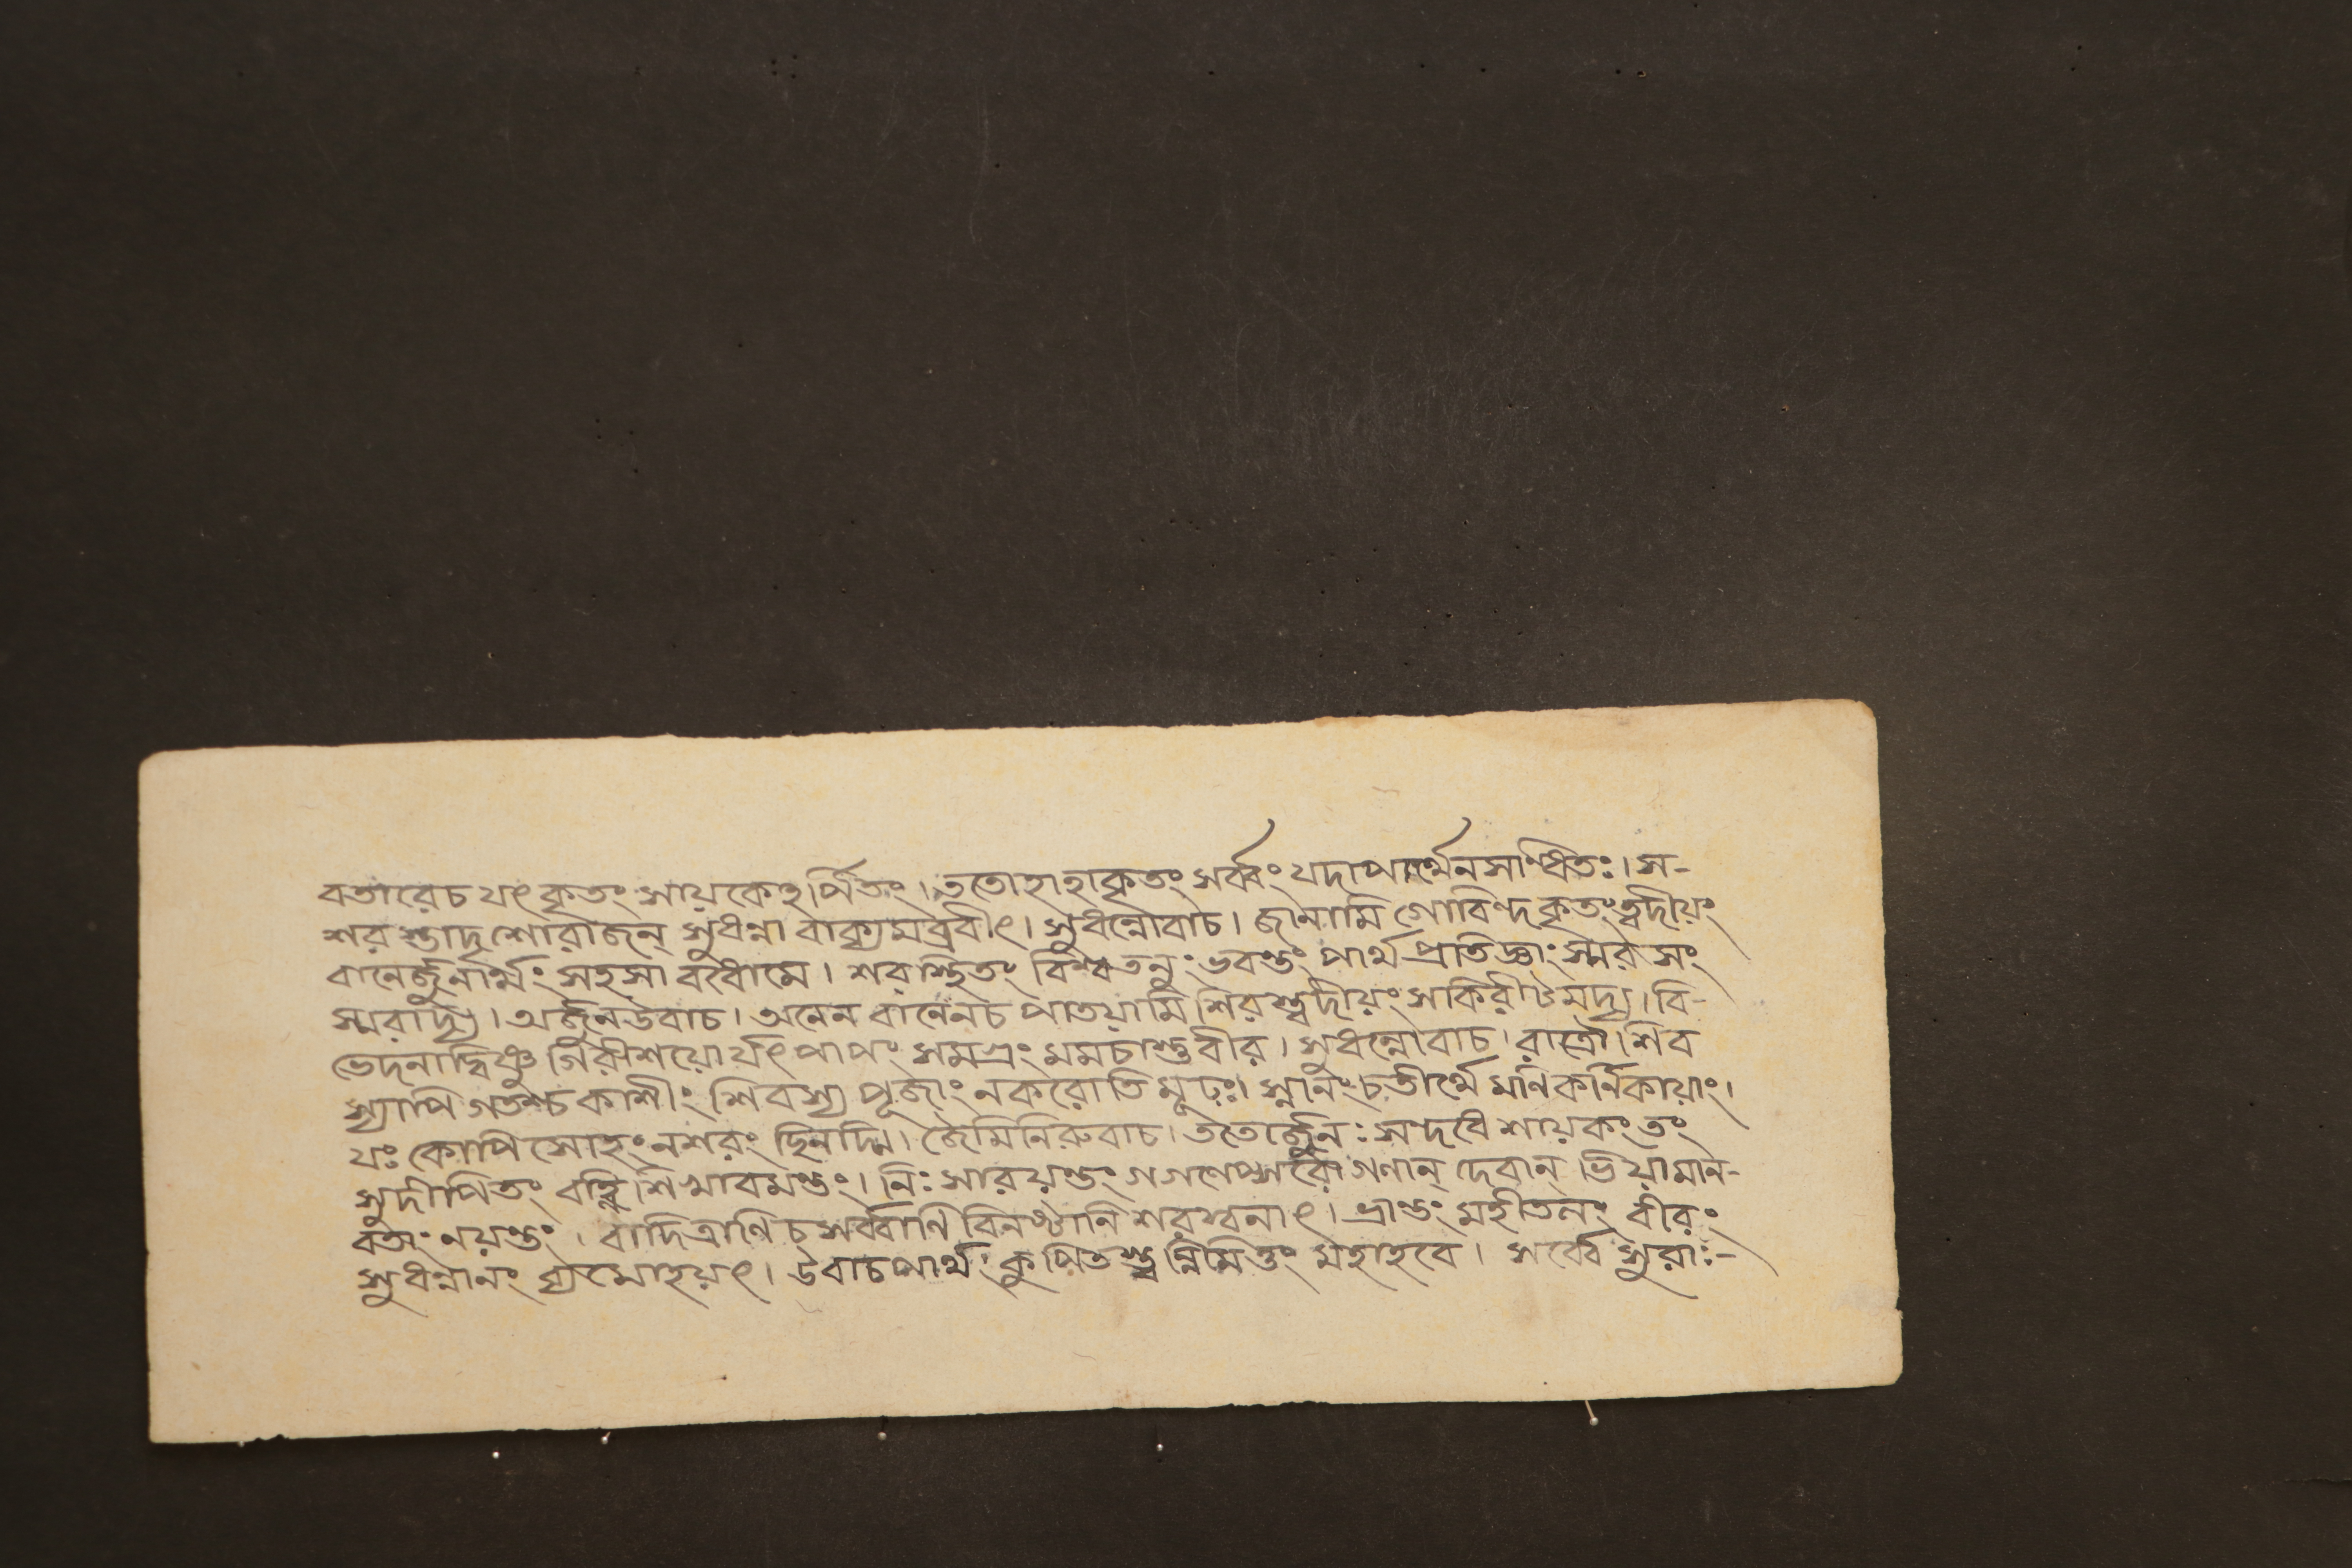 বতারেচ যৎ কৃতং সায়কেঽর্পিতং। ততোহাহাকৃতং সর্ব্বং যদাপার্থেনসাণধিতঃ। স-
শর স্তাদৃশোরাজন্ সুধন্না বাক্যমব্রবীৎ। সুধন্নোবাচ। জানামি গোবিন্দকৃতং ত্বদীয়ং
বানের্জুনার্থং সহসা বধোমে। শরস্থিতং বিশ্বতনুং ভবন্তং পার্থ প্রতিজ্ঞাং স্মর সং
স্মরাদ্য। অর্জুনউবাচ। অনেন বানেনচ পাতয়ামি শিরস্ত্বদীয়ং সকিরীটমদ্য। বি-
ভেদনাদ্বিষ্ণু গিরীশয়োর্যৎ পাপং সমগ্রং মমচাস্তুবীর। সুধন্নোবাচ। রাত্রৌ শিব
স্যাপি গতশ্চ কাশীং শিবস্য পূজাং নকরোতি মূঢ়ঃ। স্নানং চ তীর্থে মনিকর্নিকায়াং।
যঃ কোপি সোহং নশরং ছিনদ্মি। জৈমিনিরুবাচ। ততোর্জুনঃ সন্দধে শায়কং তং
সুদীপিতং বহ্নি শিখাবমন্তং। নিঃসারয়ন্তং গগণেপ্সরো গণান্ দেবান্ ভিয়ামান-
বতাং নয়ন্তং। বাদিত্রাণি চ সর্ব্বাণি বিনষ্টানি শরস্বনাৎ। ভ্রান্তং মহীতলং বীরং
সুধন্নানং ব্যমোহয়ৎ। উবাচ পার্থং কুপিতস্ত্বন্নিমিত্তং মহাহবে। সর্ব্বে সুরাঃ-